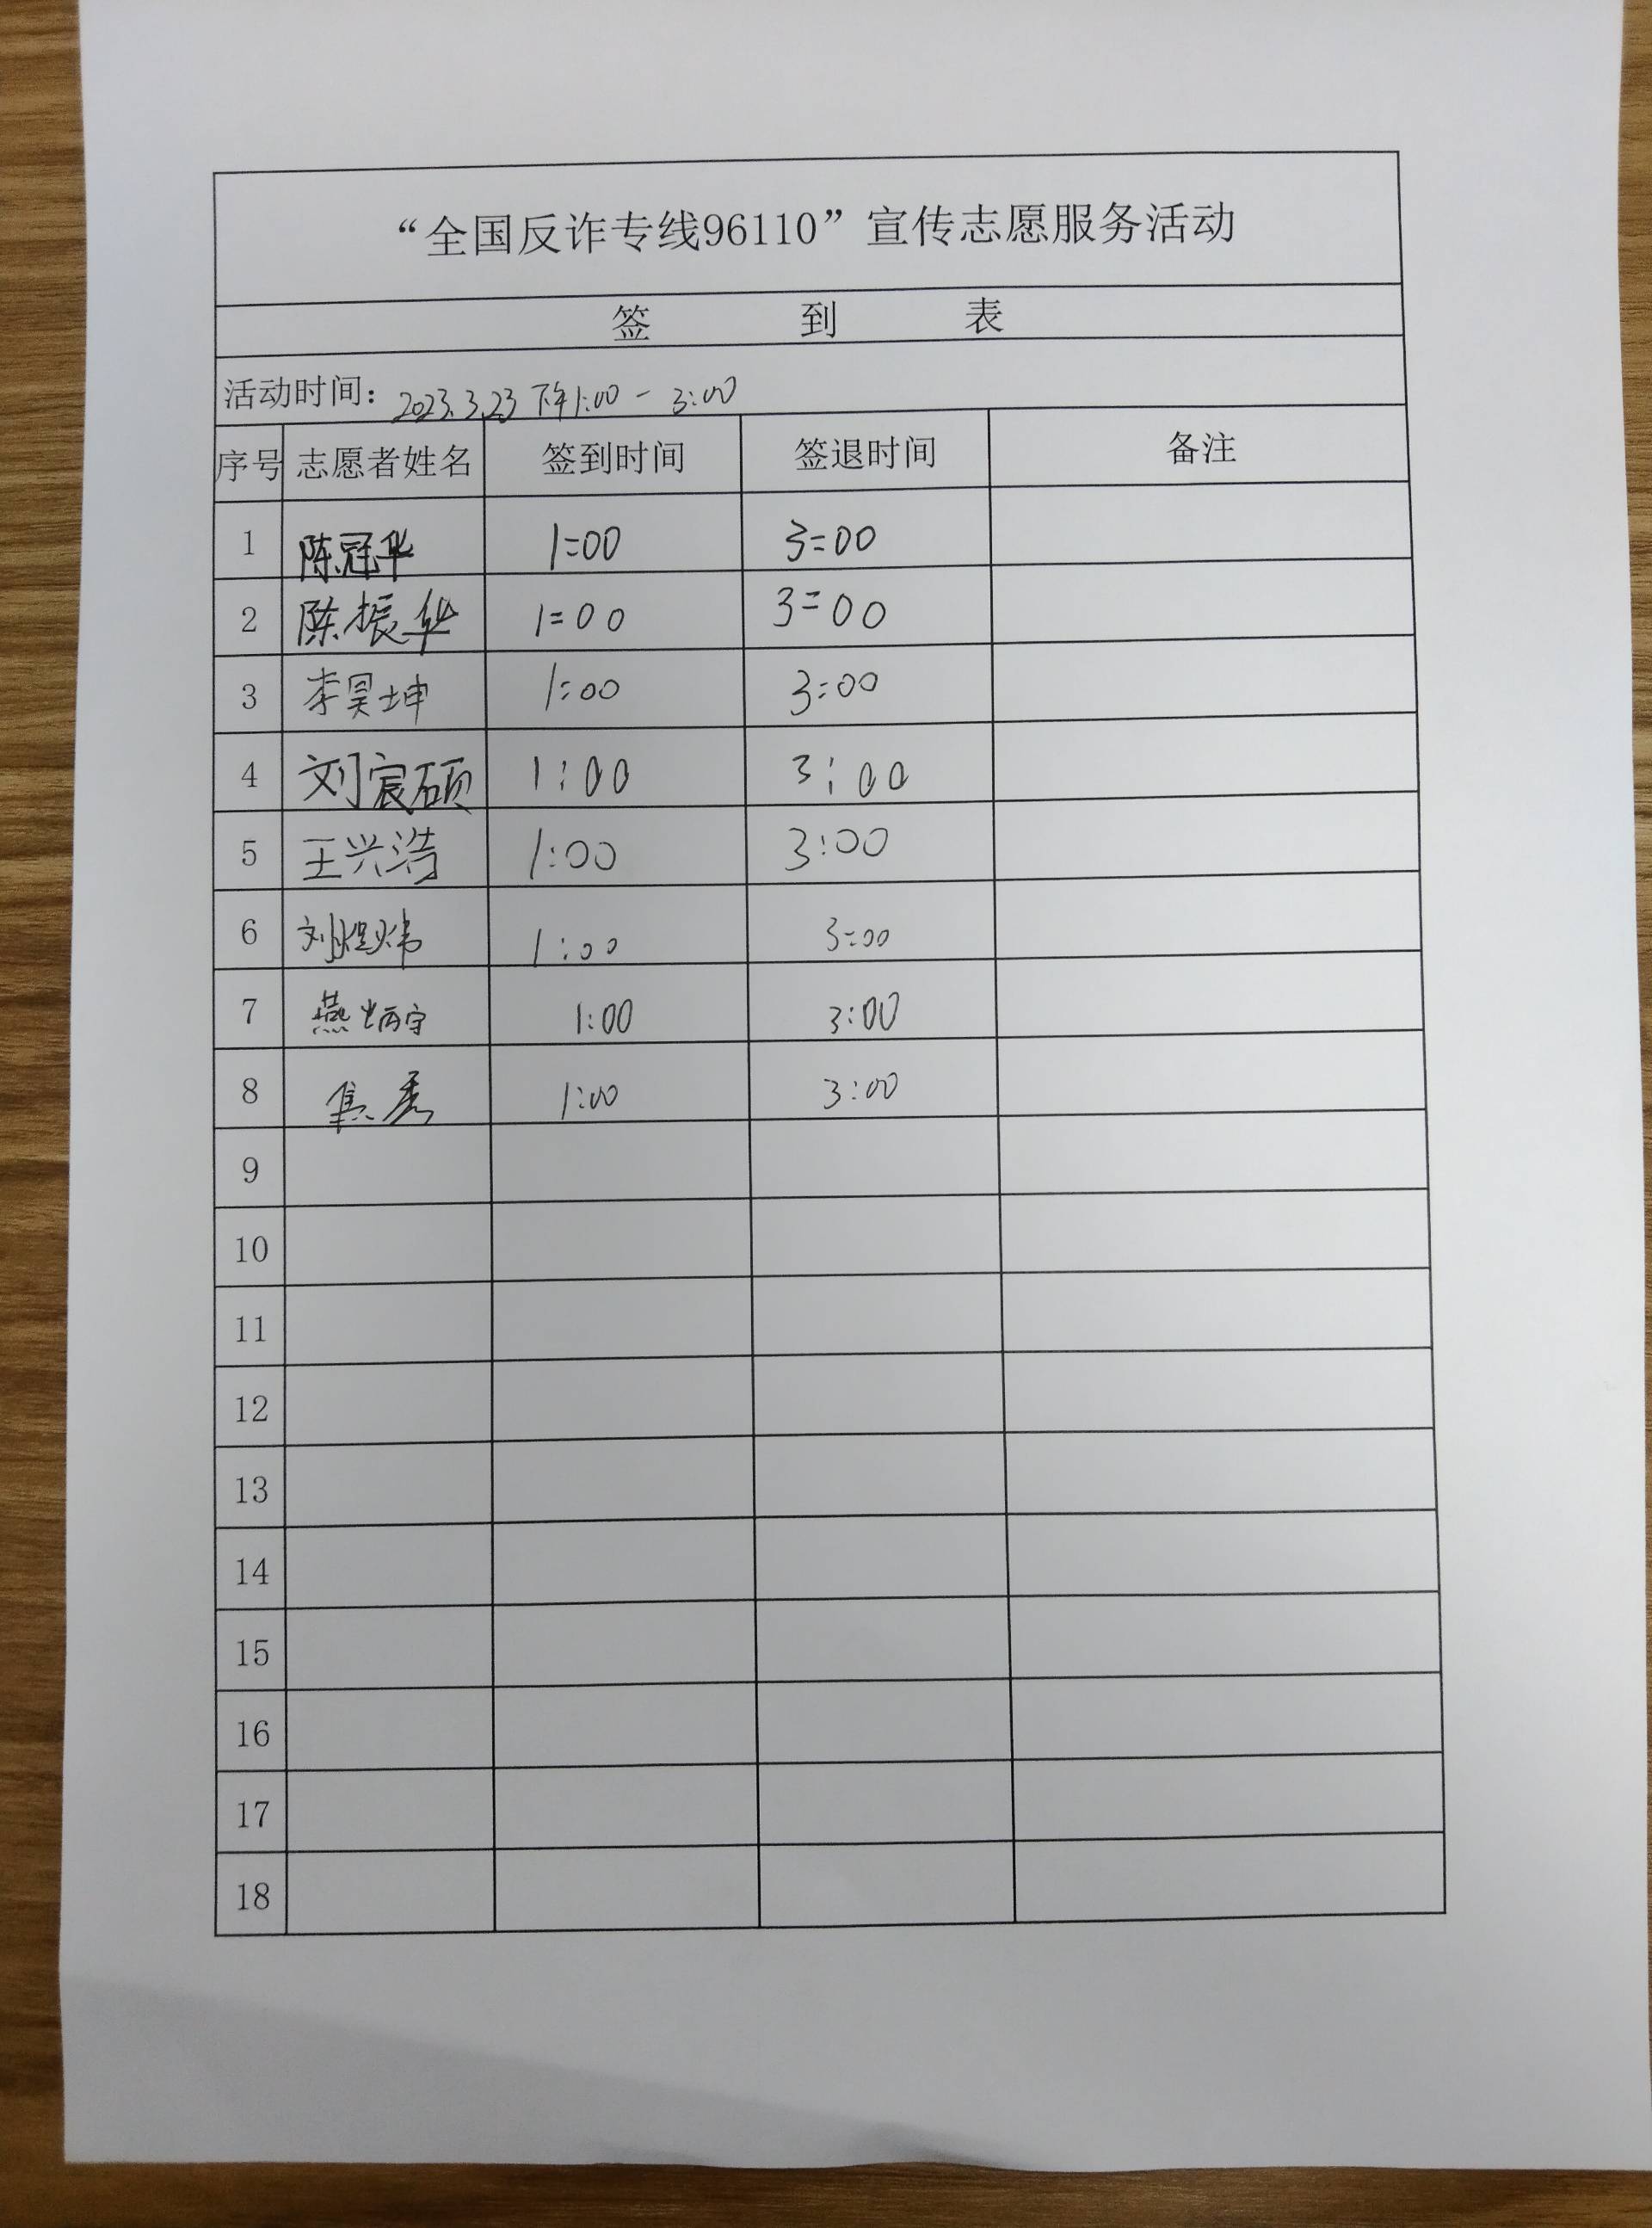 “全国反诈专线96110”宣传志愿服务活动
签 到 表
活动时间：2023.3.23 下午1:00 - 3:00
序号 志愿者姓名 签到时间 签退时间 备注
1 陈冠华 1:00 3:00
2 陈振华 1:00 3:00
3 李昊坤 1:00 3:00
4 刘宸硕 1:00 3:00
5 王兴浩 1:00 3:00
6 刘煜炜 1:00 3:00
7 燕炳宇 1:00 3:00
8 焦秀 1:00 3:00
9
10
11
12
13
14
15
16
17
18